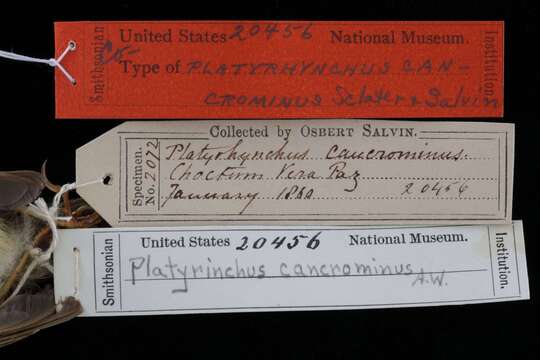 Smithsonian
United States 20456 National Museum.
Type of PLATYRHYNCHUS CAN-
CROMINUS Sclater & Salvin
Institution.
Collected by OSBERT SALVIN.
Specimen.
No. 2072
Platyrhynchus cancrominus.
Choctum Vera Paz
January 1860 20456
Smithsonian
United States 20456 National Museum.
Platyrinchus cancrominus A.W.
Institution.